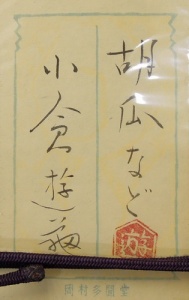 胡瓜など
小倉遊亀
遊
岡村多聞堂